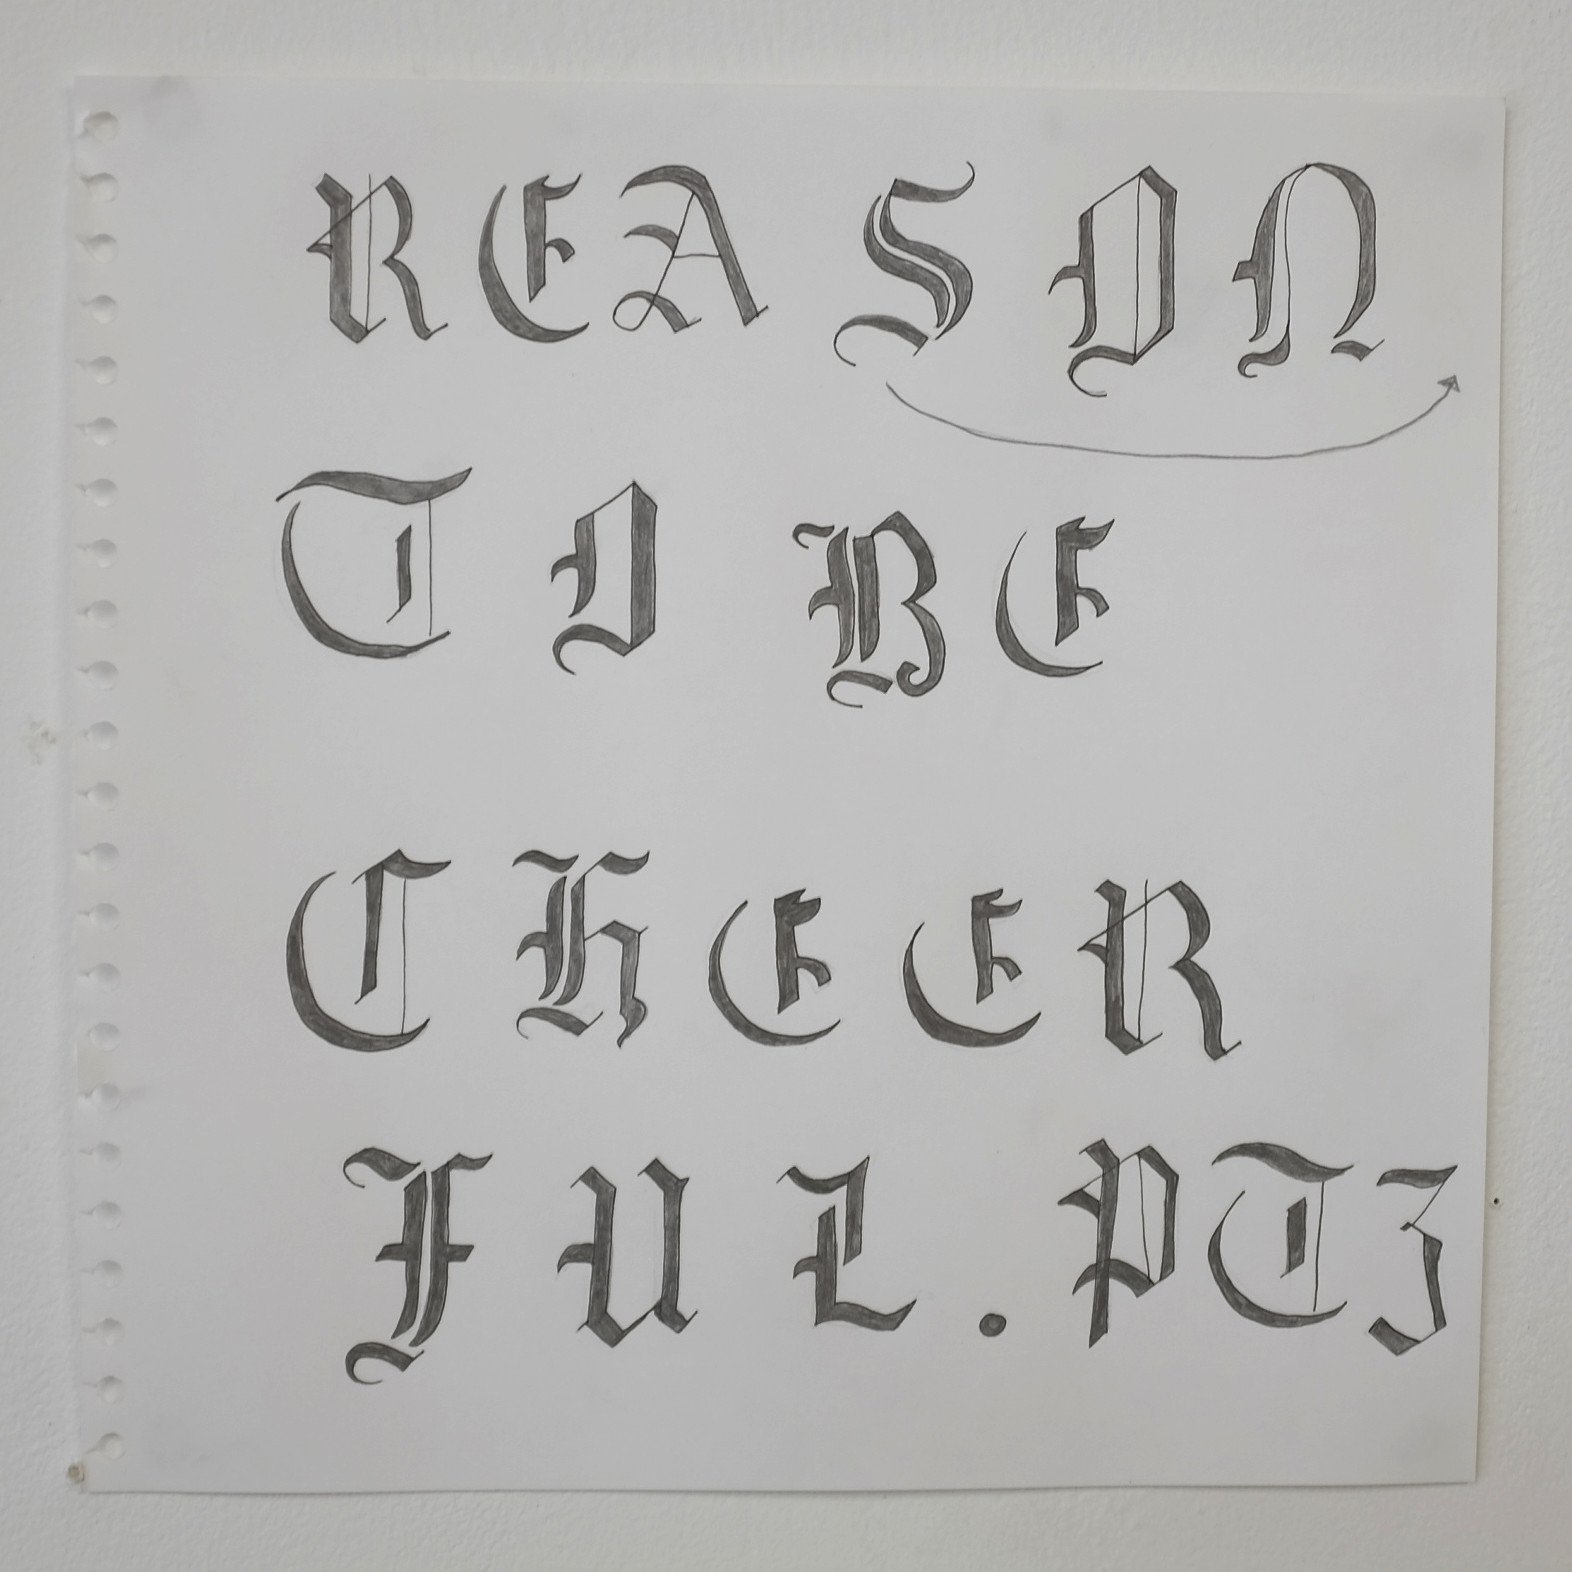 REASON
TO BE
CHEER
FUL. PT3